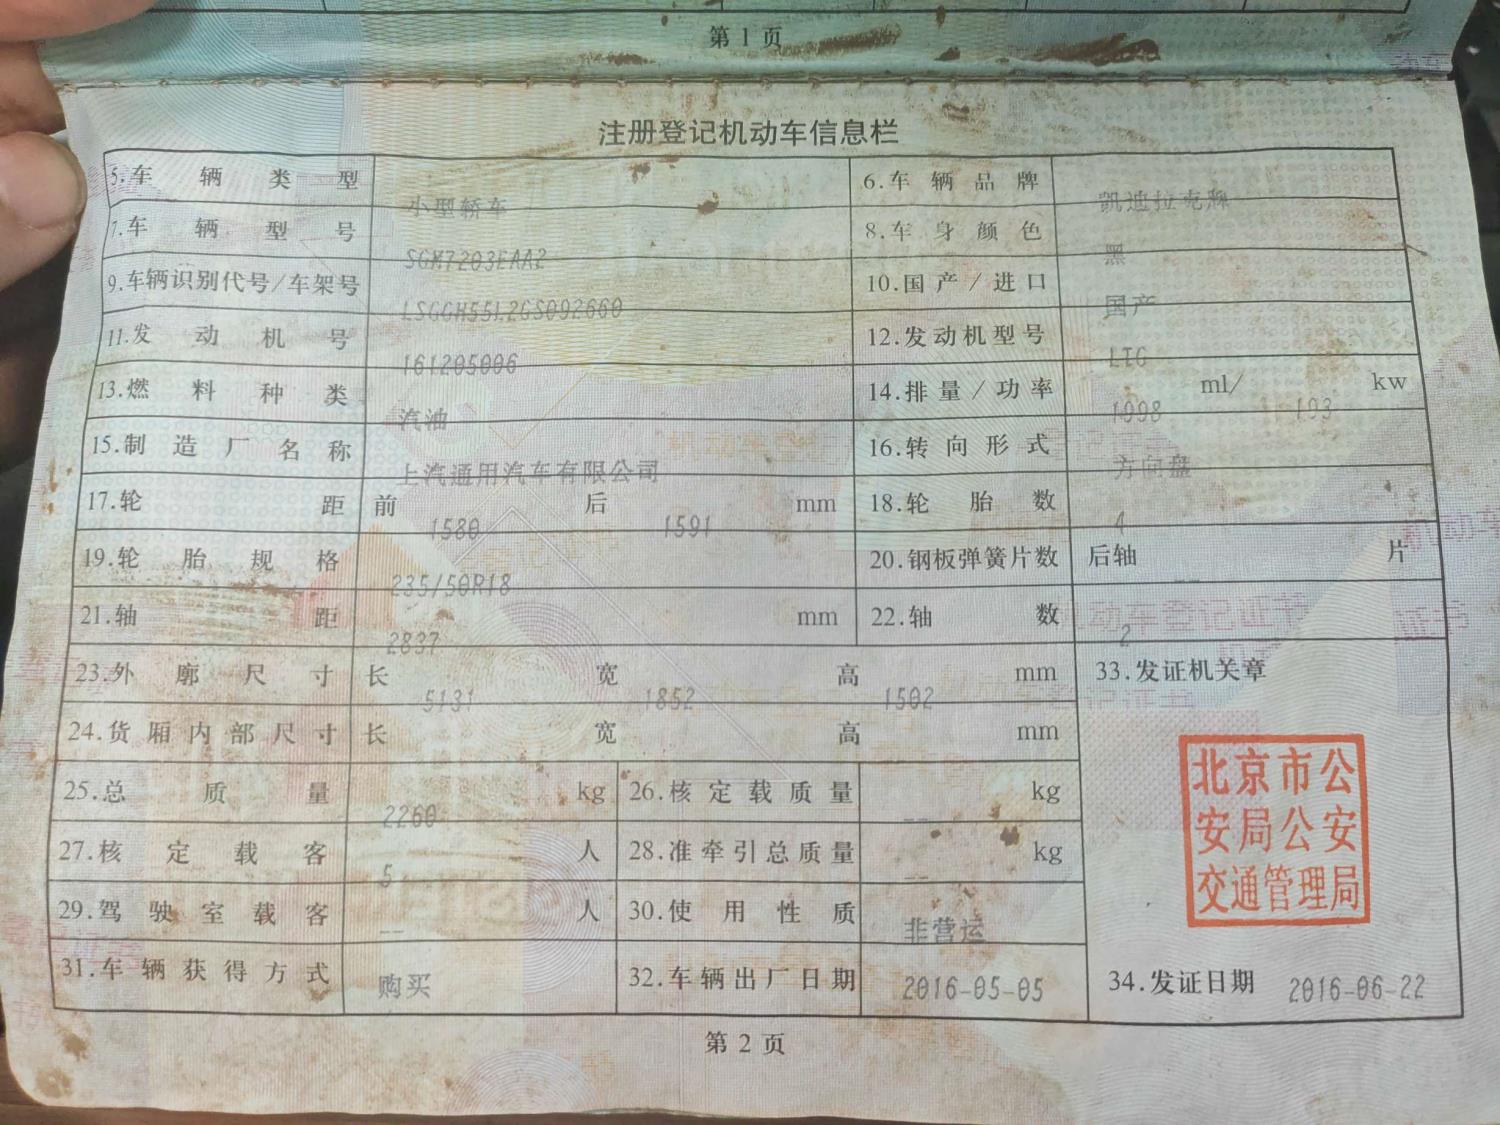 第 1 页
注册登记机动车信息栏
5.车辆类型 小型轿车 6.车辆品牌 凯迪拉克牌
7.车辆型号 SGM7203EAA2 8.车身颜色 黑
9.车辆识别代号/车架号 LSGGH55L2GS092660 10.国产/进口 国产
11.发动机号 161205006 12.发动机型号 LTG
13.燃料种类 汽油 14.排量/功率 1998 ml/ 193 kw
15.制造厂名称 上汽通用汽车有限公司 16.转向形式 方向盘
17.轮距 前 1580 后 1591 mm 18.轮胎数 4
19.轮胎规格 235/50R18 20.钢板弹簧片数 后轴 -- 片
21.轴距 2837 mm 22.轴数 2
23.外廓尺寸 长 5131 宽 1852 高 1502 mm 33.发证机关章
24.货厢内部尺寸 长 宽 高 mm
25.总质量 2260 kg 26.核定载质量 -- kg
27.核定载客 5 人 28.准牵引总质量 -- kg
29.驾驶室载客 -- 人 30.使用性质 非营运
北京市公
安局公安
交通管理局
31.车辆获得方式 购买 32.车辆出厂日期 2016-05-05 34.发证日期 2016-06-22
第 2 页